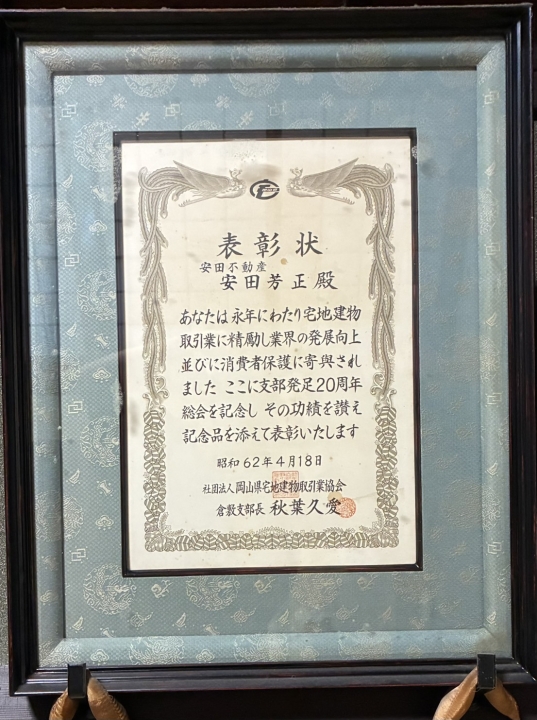 表彰状
安田不動産
安田芳正殿
あなたは永年にわたり宅地建物
取引業に精励し業界の発展向上
並びに消費者保護に寄與され
ました ここに支部発足20周年
総会を記念し その功績を讃え
記念品を添えて表彰いたします
昭和62年4月18日
社団法人岡山県宅地建物取引業協会
倉敷支部長 秋葉久愛